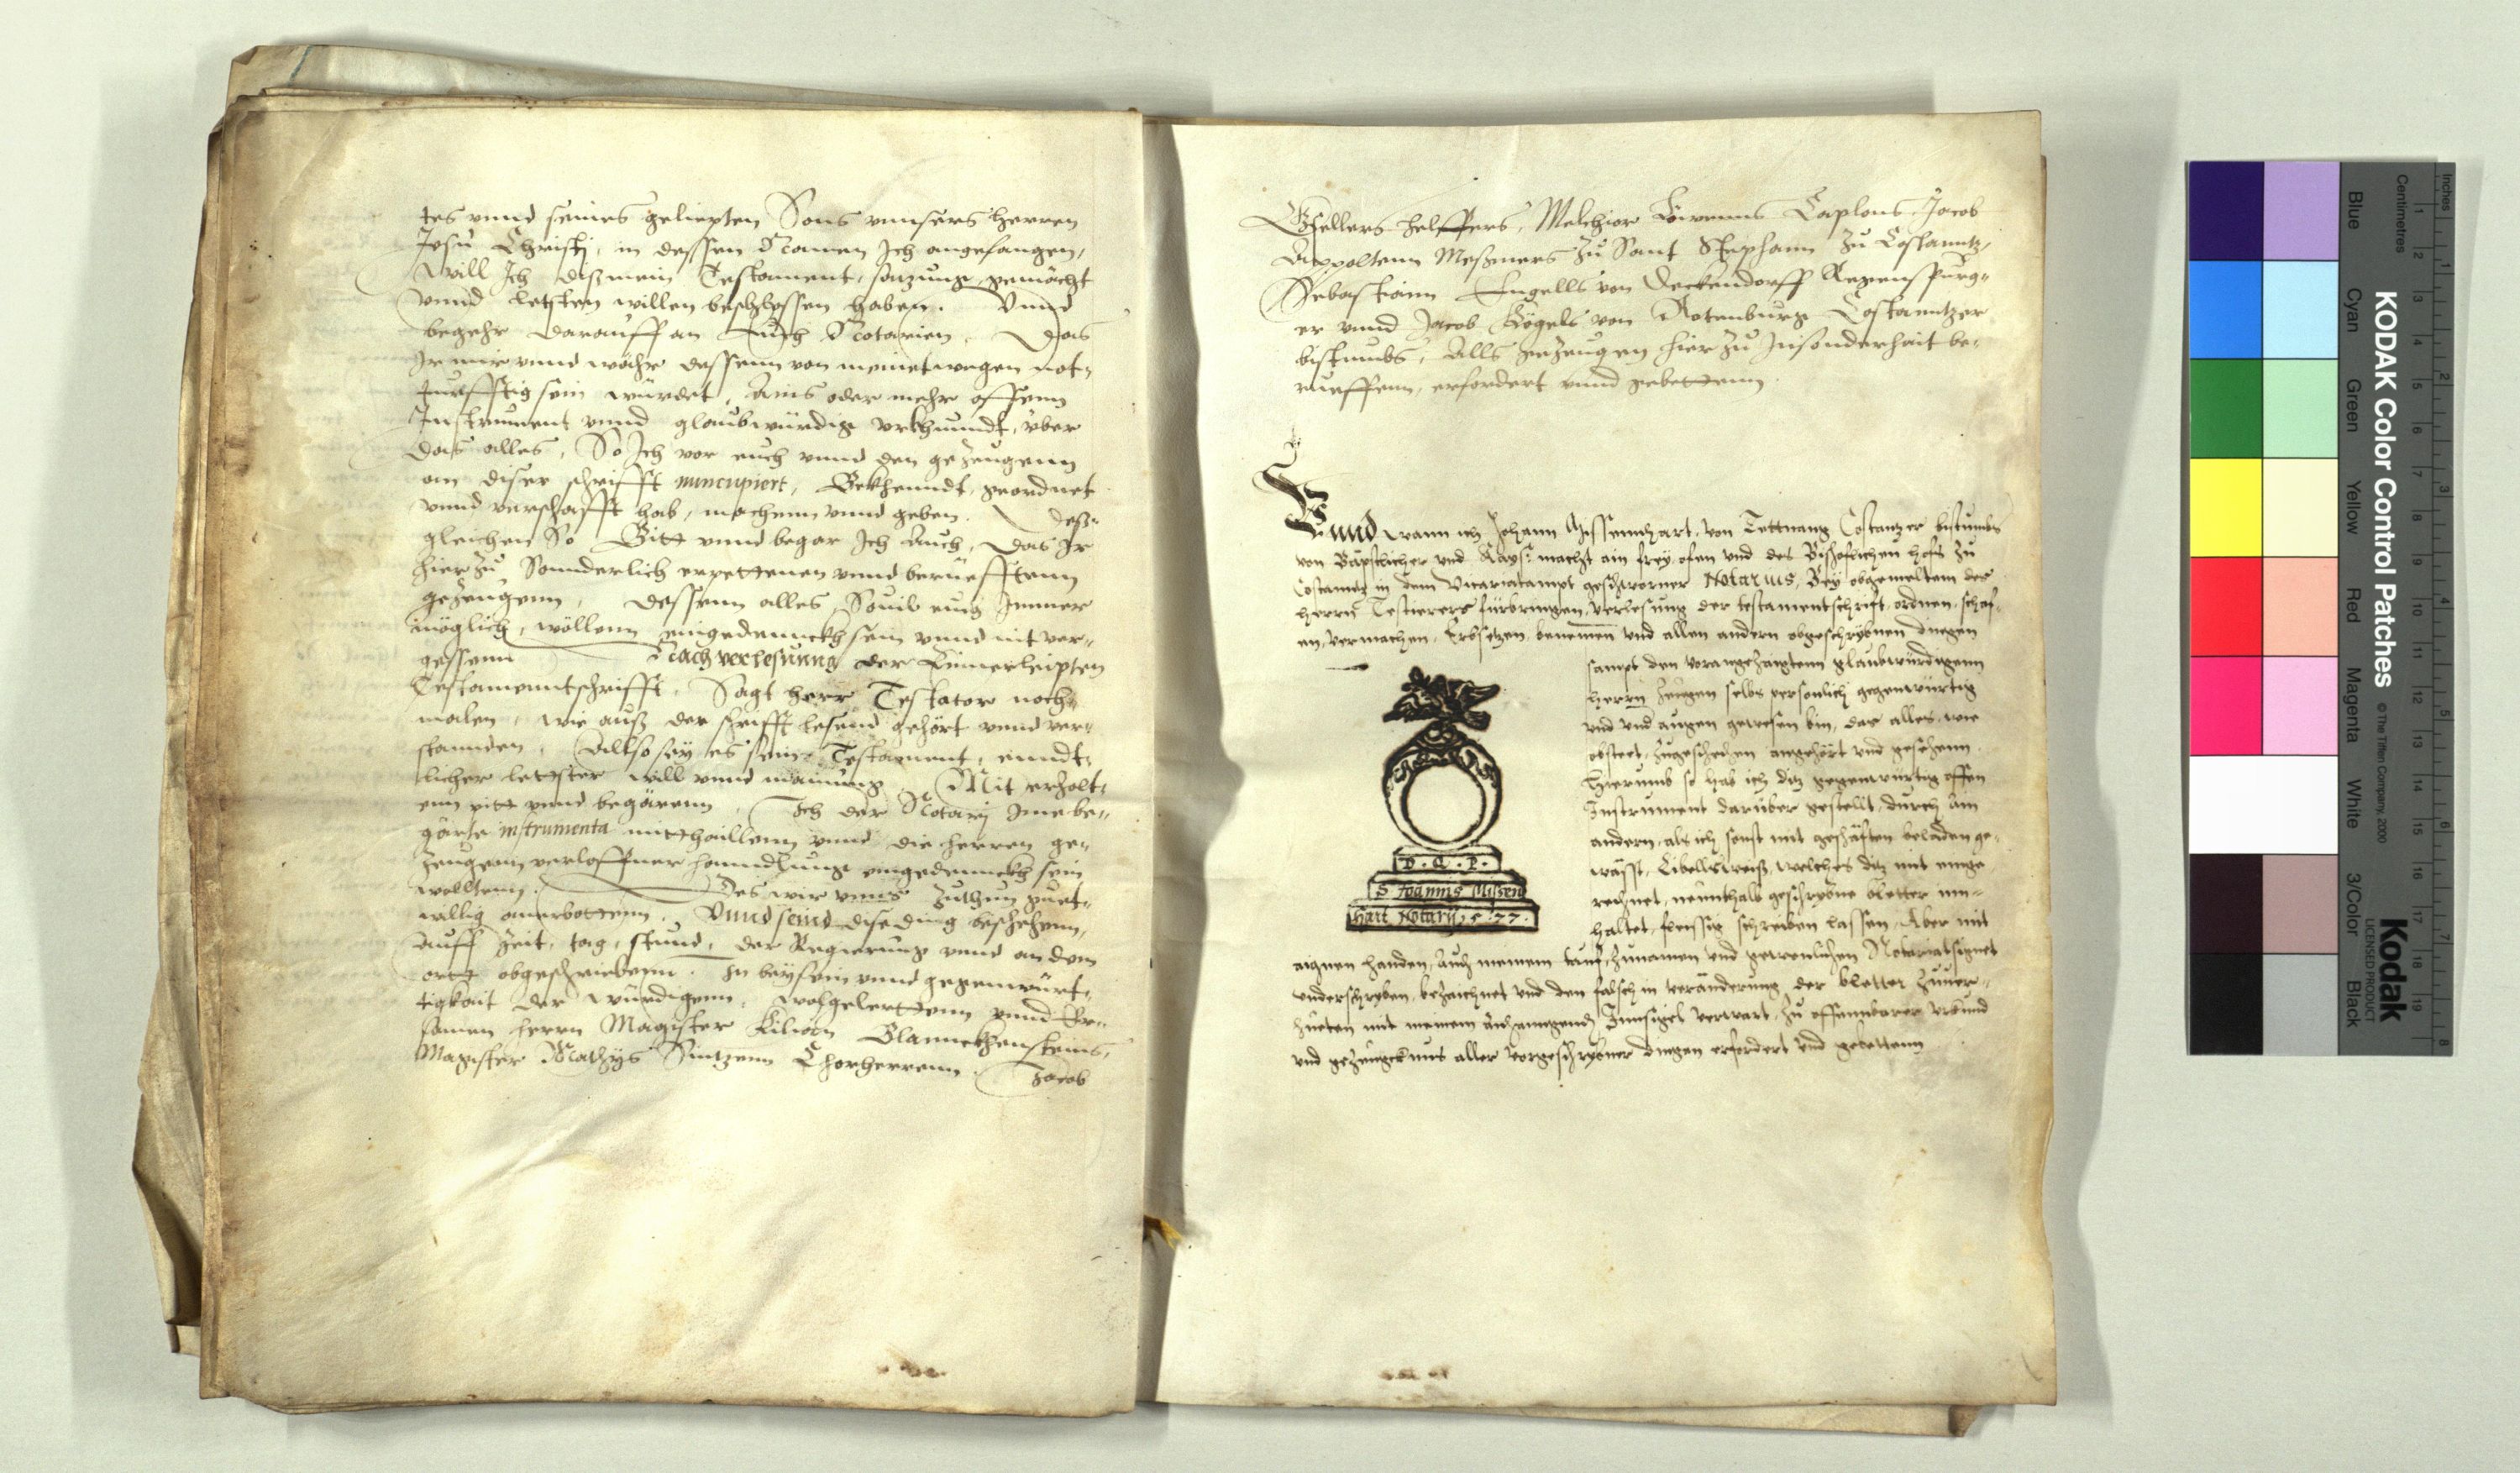 tes vnnd seines geliepten Sons vnnsers herren
Jesu Christj, in dessen Namen Ich angefangen,
Will Ich diß mein Testament, satzung, gemächt
vnnd letsten willen beschlossen haben. Vnnd
begehr darauff an Euch Notarien, Das
Ir mir vnnd wöhr dessenn von meinetwegen not-
turfftig sein würdet, Ains oder mehr offenn
Instrument vnnd glaubwürdig vrkhunndt, vber
das alles, So Ich vor euch vnnd den gezeugenn
an diser schrifft nuncupiert, Bekhenndt, geordnet
vnnd verschafft hab, machenn vnnd geben. Deß-
gleichen So Bitt vnnd beger Ich Auch, Das Ir
hierzů Sonnderlich erpettenen vnnd berüefftenn
gezeugenn, dessenn alles, Souil euch Immer
möglich, wöllenn eingedennckh sein vnnd nit ver-
gessenn Nach verlesunng der Einuerleipten
Testamenntschrifft, Sagt herr Testator noch-
malen, wie auß der schrifft lesend gehört vnnd ver-
stannden, Allso sey es sein Testament, enndt-
licher letster will vnnd mainung. Mit erholt-
enn pitt vnnd begärenn, Ich der Notarj Ime be-
gärte instrumenta mitthaillenn vnnd die herren ge-
zeugenn verloffner hanndlung eingedennckh sein
wolltenn. Des wir vnns zuthun guet-
willig anerbottenn. Vnnd seind dise ding beschehenn,
Auff Zeit, tag, stund, der Regierung vnnd an dem
ortt obgeschriebenn. In beysein vnnd gegenwürt-
tigkait der würdigenn, wolgelerttenn vnnd Er-
samen herrn Magister Kilion Blannckhensteins,
Magister Mathys Sintzenn Chorherrenn. Jacob
Gsellers helffers, Melchior Caplons, Jacob
Appoltenn Meßmers zů Sant Stephann zů Costanntz,
Sebastiann Engells von Deckendorff Regenspurg-
er vnnd Jacob Kögels von Rotenburg Costanntzer
bistumbs, Alls gezeugen hierzů Insonderhait be-
rueffenn, erfordert vnnd gebettenn.
Vnnd wann ich Johann Missennhart, von Tettnang Costantzer bistumbs
von Bäpstlicher vnd Kays: macht ain frey ofen vnd des Bischoflichen hofs zů
Costantz in dem Vicariatampt geschworner Notarius, Bey obgemeltem des
herrn Testierers fürbringen, verlesung der testamentschrift, ordnen, schaf-
en, vermachen, Erbsetzen, benemen vnd allen andern obgeschrybnen dingen
sampt den vorangezaigtenn glaubwürdigenn
herrn zeugen selbs personlich gegenwürtig
vnd vnd augen gewesen bin, das alles, wie
obsteet, zugeschehen angehört vnd gesehenn.
Hierumb so hab ich diz gegenwürtig offen
Instrument darüber gestellt, durch ain
andern, als ich sonst mit geschäften beladen ge-
wässt, Libellsweiß, welches diz mit einge
rechnet, neunthalb geschrybne bletter inn-
haltet, fleissig schreiben lassen, Aber mit
D. Q. P.
S Joannis Missen
hart Notarij 1577.
aignen handen, Auch meinem tauf, zunamen vnd gewonlichen Notariatsignet
vnderschryben, bezaichnet vnd den falsch in veränderung der bletter zůuer-
hüeten mit meinem anhanngendn Innsigel verwart, zů offennbarer vrkund
vnd gezeugcknus aller vorgeschrybner dingen erfordert vnd gebettenn
Inches
Centimetres
Blue
Cyan
Green
Yellow
Red
Magenta
White
3/Color
Black
KODAK Color Control Patches
© The Tiffen Company, 2000
Kodak
LICENSED PRODUCT
1
2
3
4
5
6
7
8
9
10
11
12
13
14
15
16
17
18
19
1
2
3
4
5
6
7
8